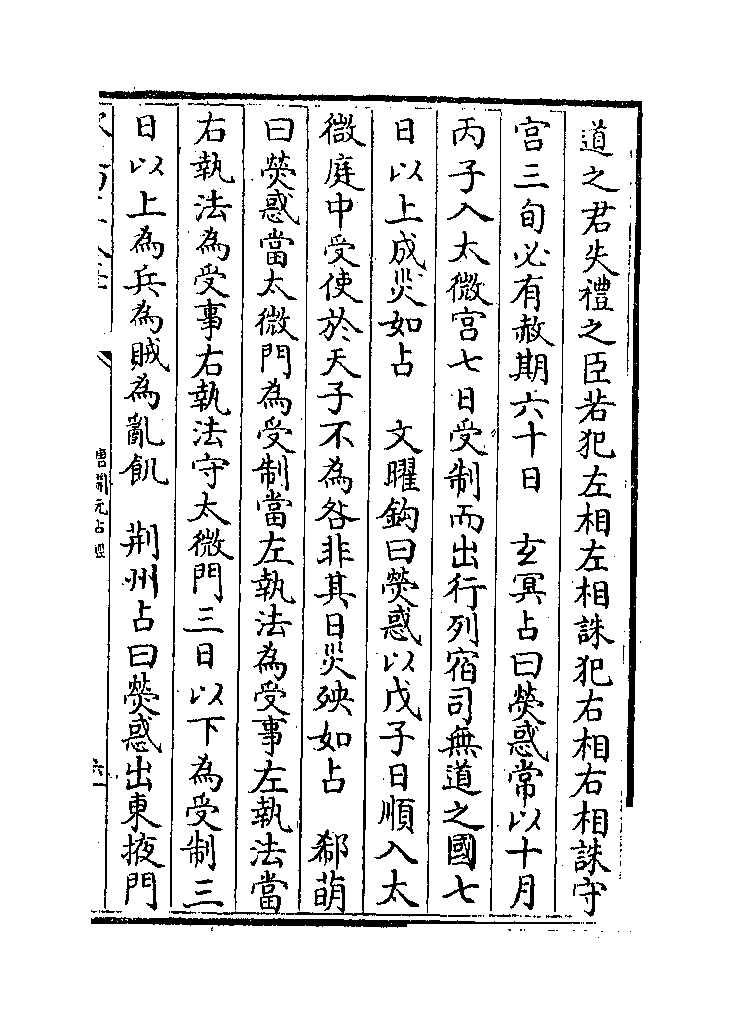 道之君失禮之臣若犯左相左相誅犯右相右相誅守
宫三旬必有赦期六十日　玄冥占曰熒惑常以十月
丙子入太微宫七日受制而出行列宿司無道之國七
日以上成災如占　文曜鈎曰熒惑以戊子日順入太
微庭中受使於天子不為咎非其日災殃如占　郗萌
曰熒惑當太微門為受制當左執法為受事左執法當
右執法為受事右執法守太微門三日以下為受制三
日以上為兵為賊為亂飢　荆州占曰熒惑出東掖門
唐開元占經